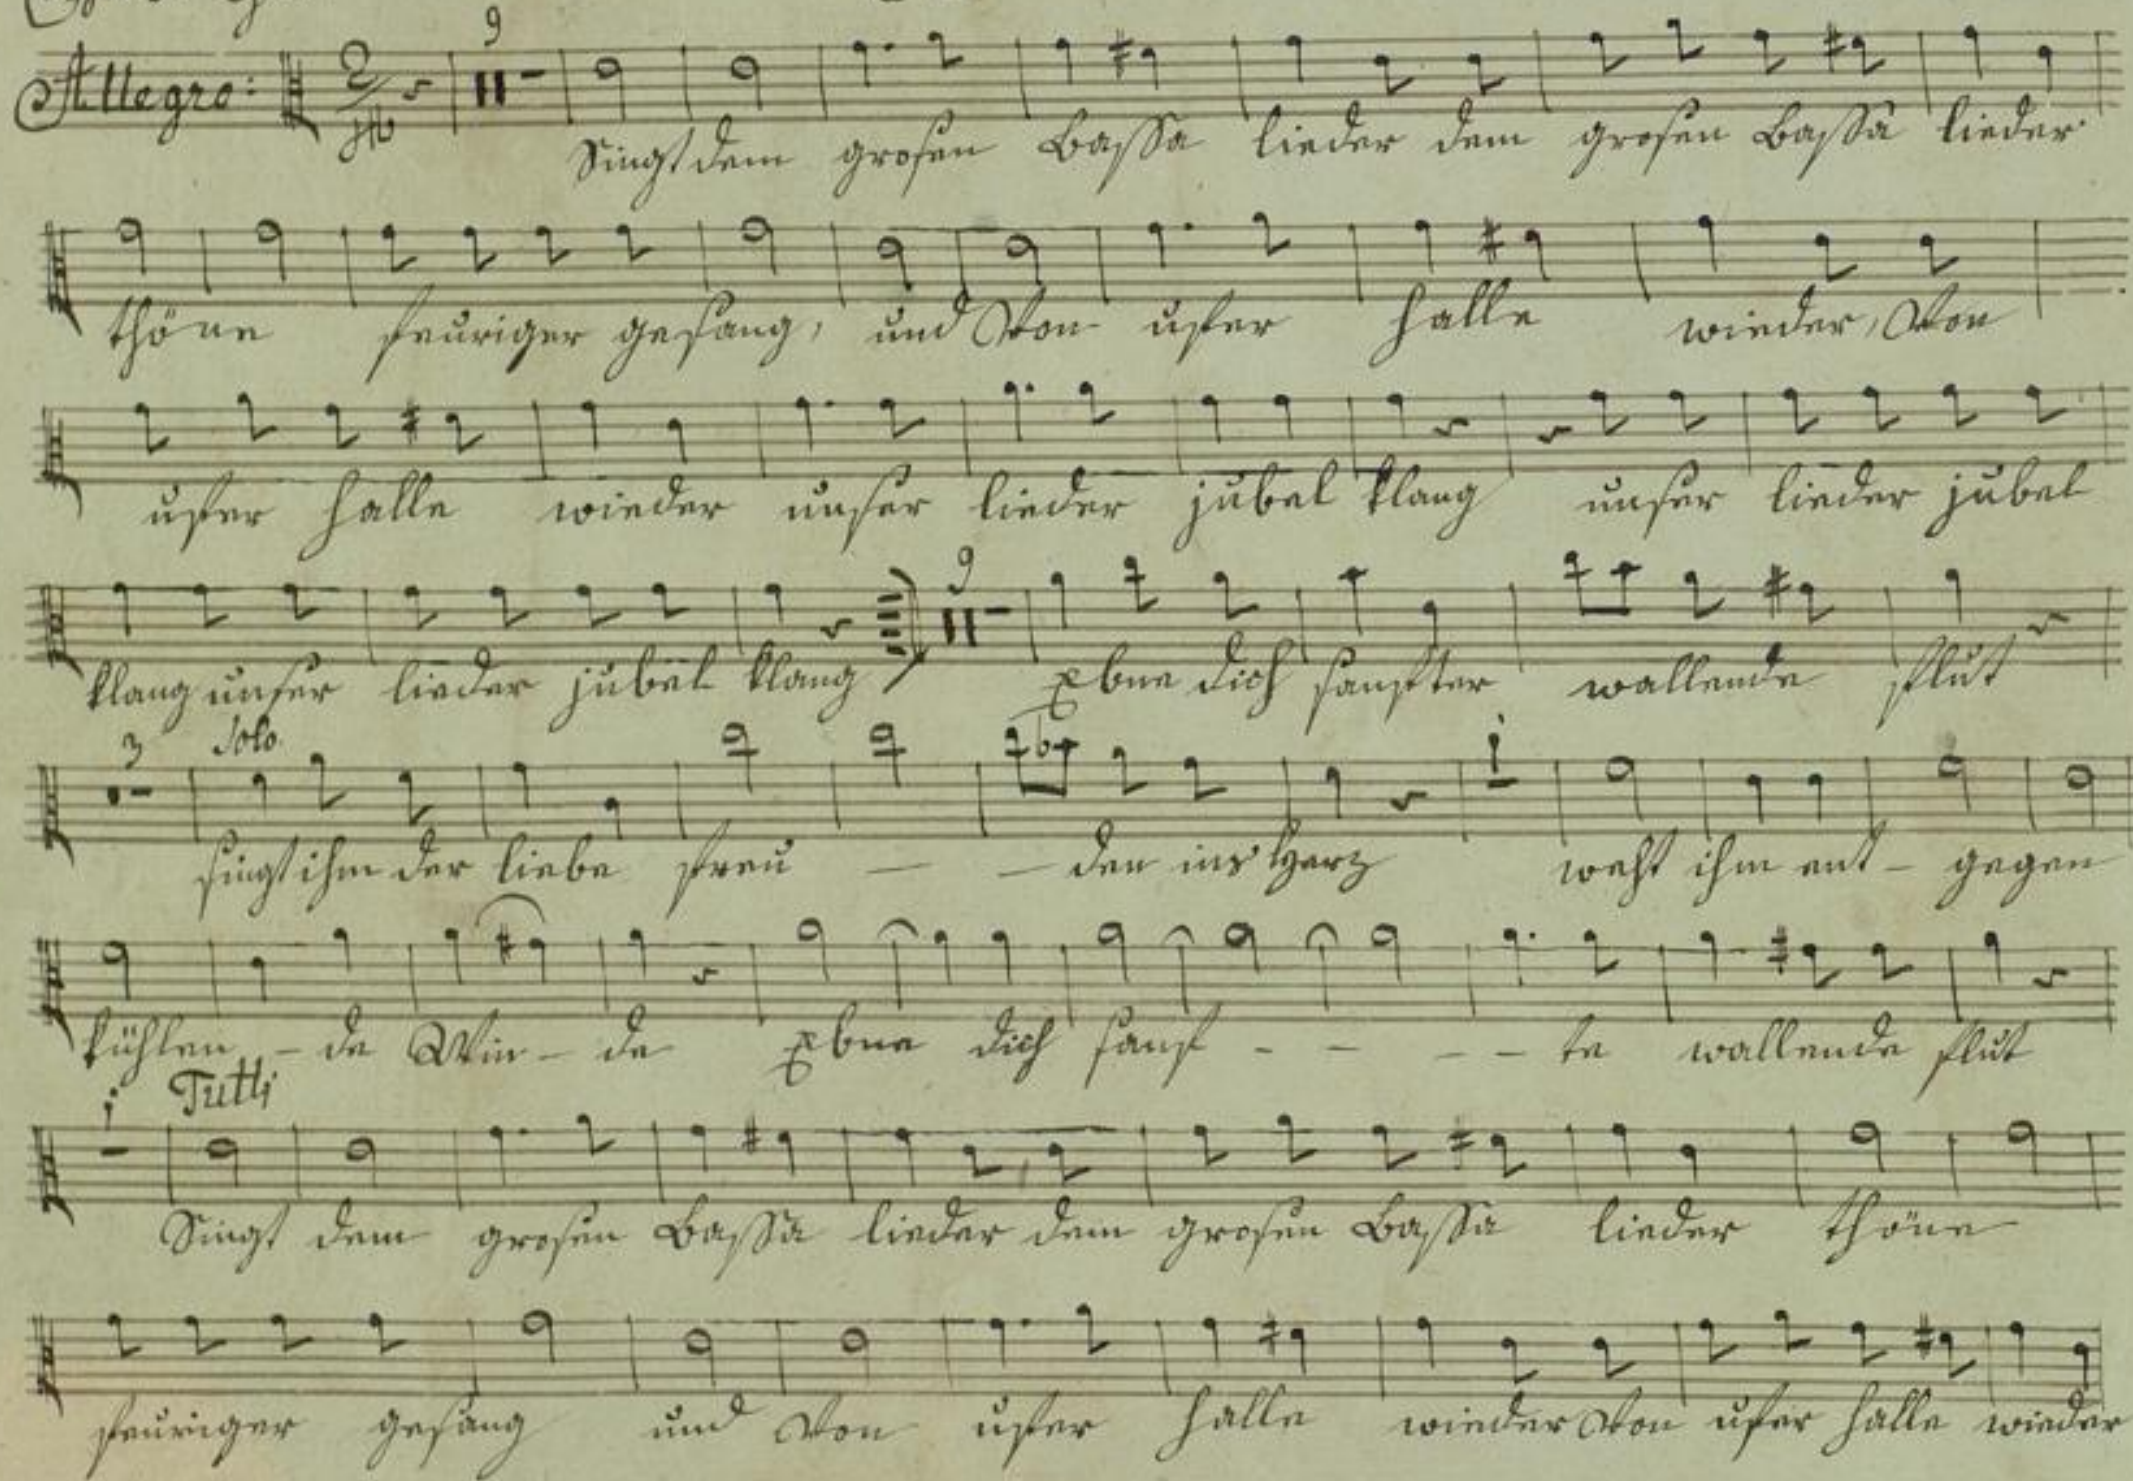 9
Allegro:
Singt dem grosen Bassa lieder dem grosen Bassa lieder
thöne feuriger gesang, und Von ufer halle wieder, Von
ufer halle wieder unser lieder jubel klang unser lieder jubel
9
klang unser lieder jubel klang Ebne dich sanfter wallende flut
3 Solo
singt ihm der liebe freu — — den ins Herz weht ihm ent - gegen
kühlen - de Win - de Ebne dich sanf - - - - te wallende flut
Tutti
Singt dem grosen Bassa lieder dem grosen Bassa lieder thöne
feuriger gesang und Von ufer halle wieder Von ufer halle wieder